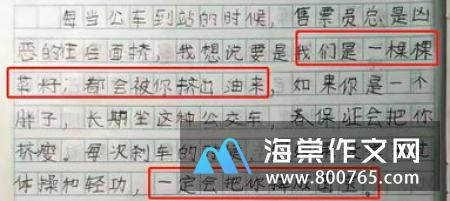 每当公车到站的时候，售票员总是凶
恶的往后面挤，我想说要是我们是一棵棵
菜籽，都会被你挤出油来，如果你是一个
胖子，长期坐这种公交车，卷保证会把你
挤瘦。每次刹车的
体操和轻功，一定会把你
海棠作文网
800765.com